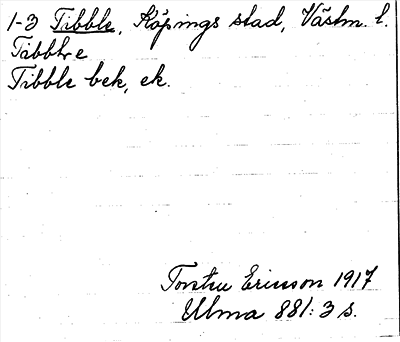 1-3 Tibble, Köpings stad, Västm. l.
Tibble bek, ek.
Torsten Ericsson 1917
Ulma 881:3 s.